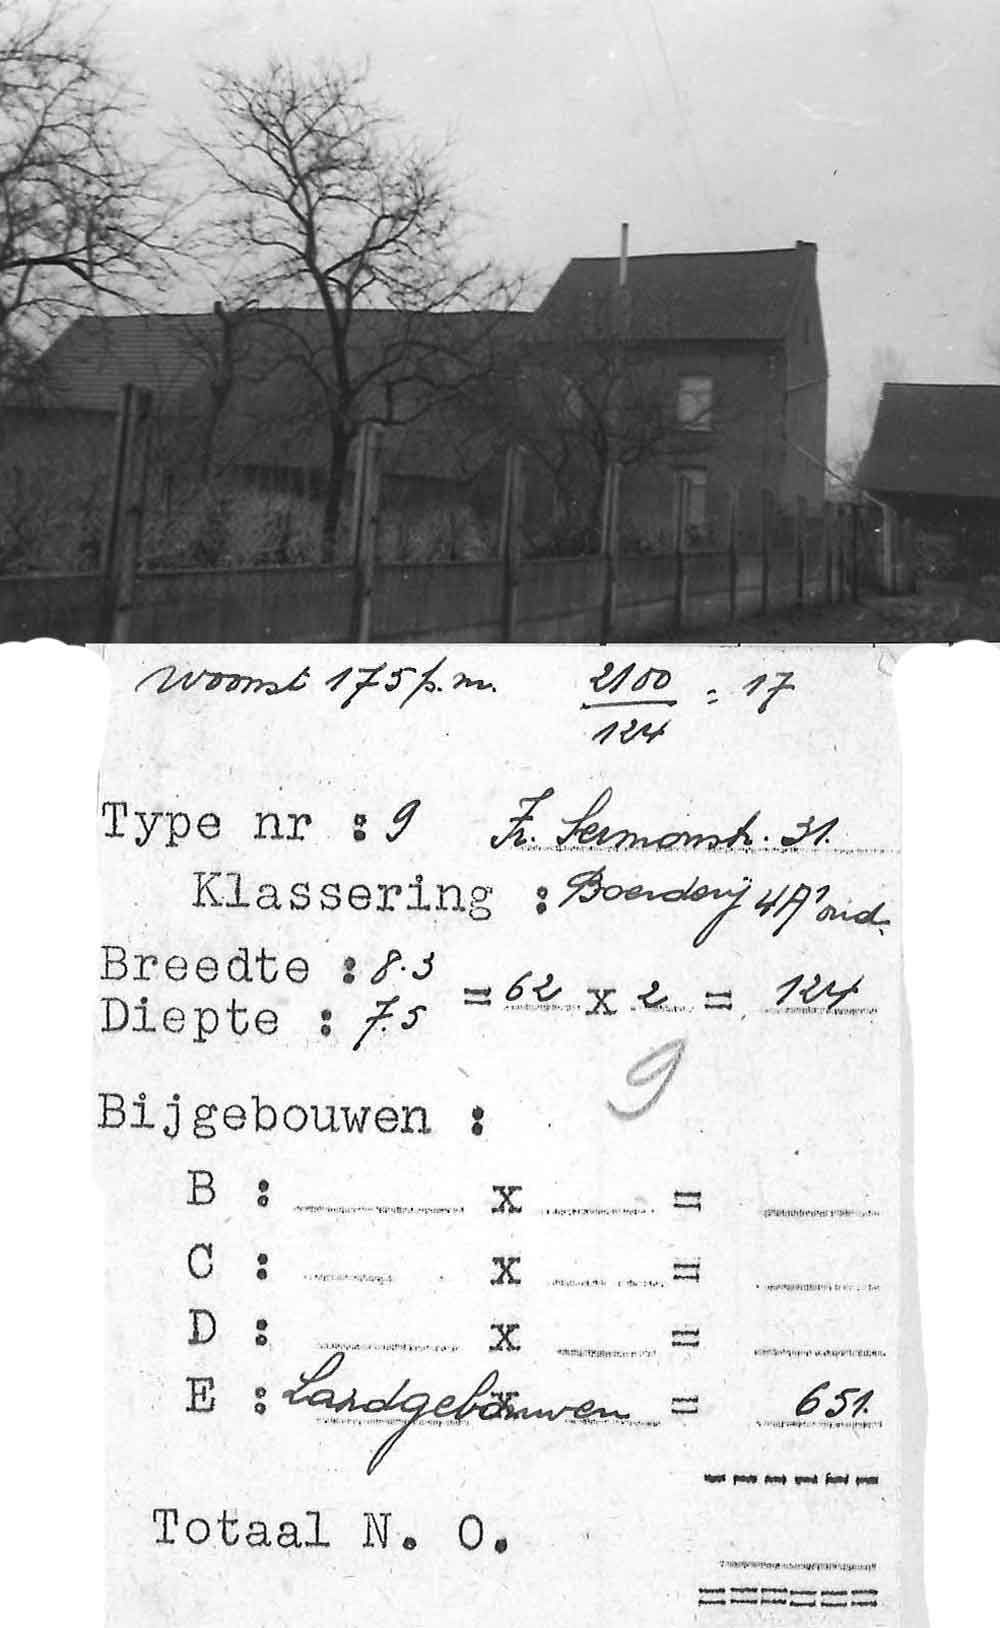 Woonst 175 p.m. 2100 / 124 = 17
Type nr : 9 Fr. Sermonstr. 31.
Klassering : Boerderij 4A' oud.
Breedte : 8.3
Diepte : 7.5 = 62 x 2 = 124
9
Bijgebouwen :
B : x =
C : x =
D : x =
E : Landgebouwen x = 651.
Totaal N. O.